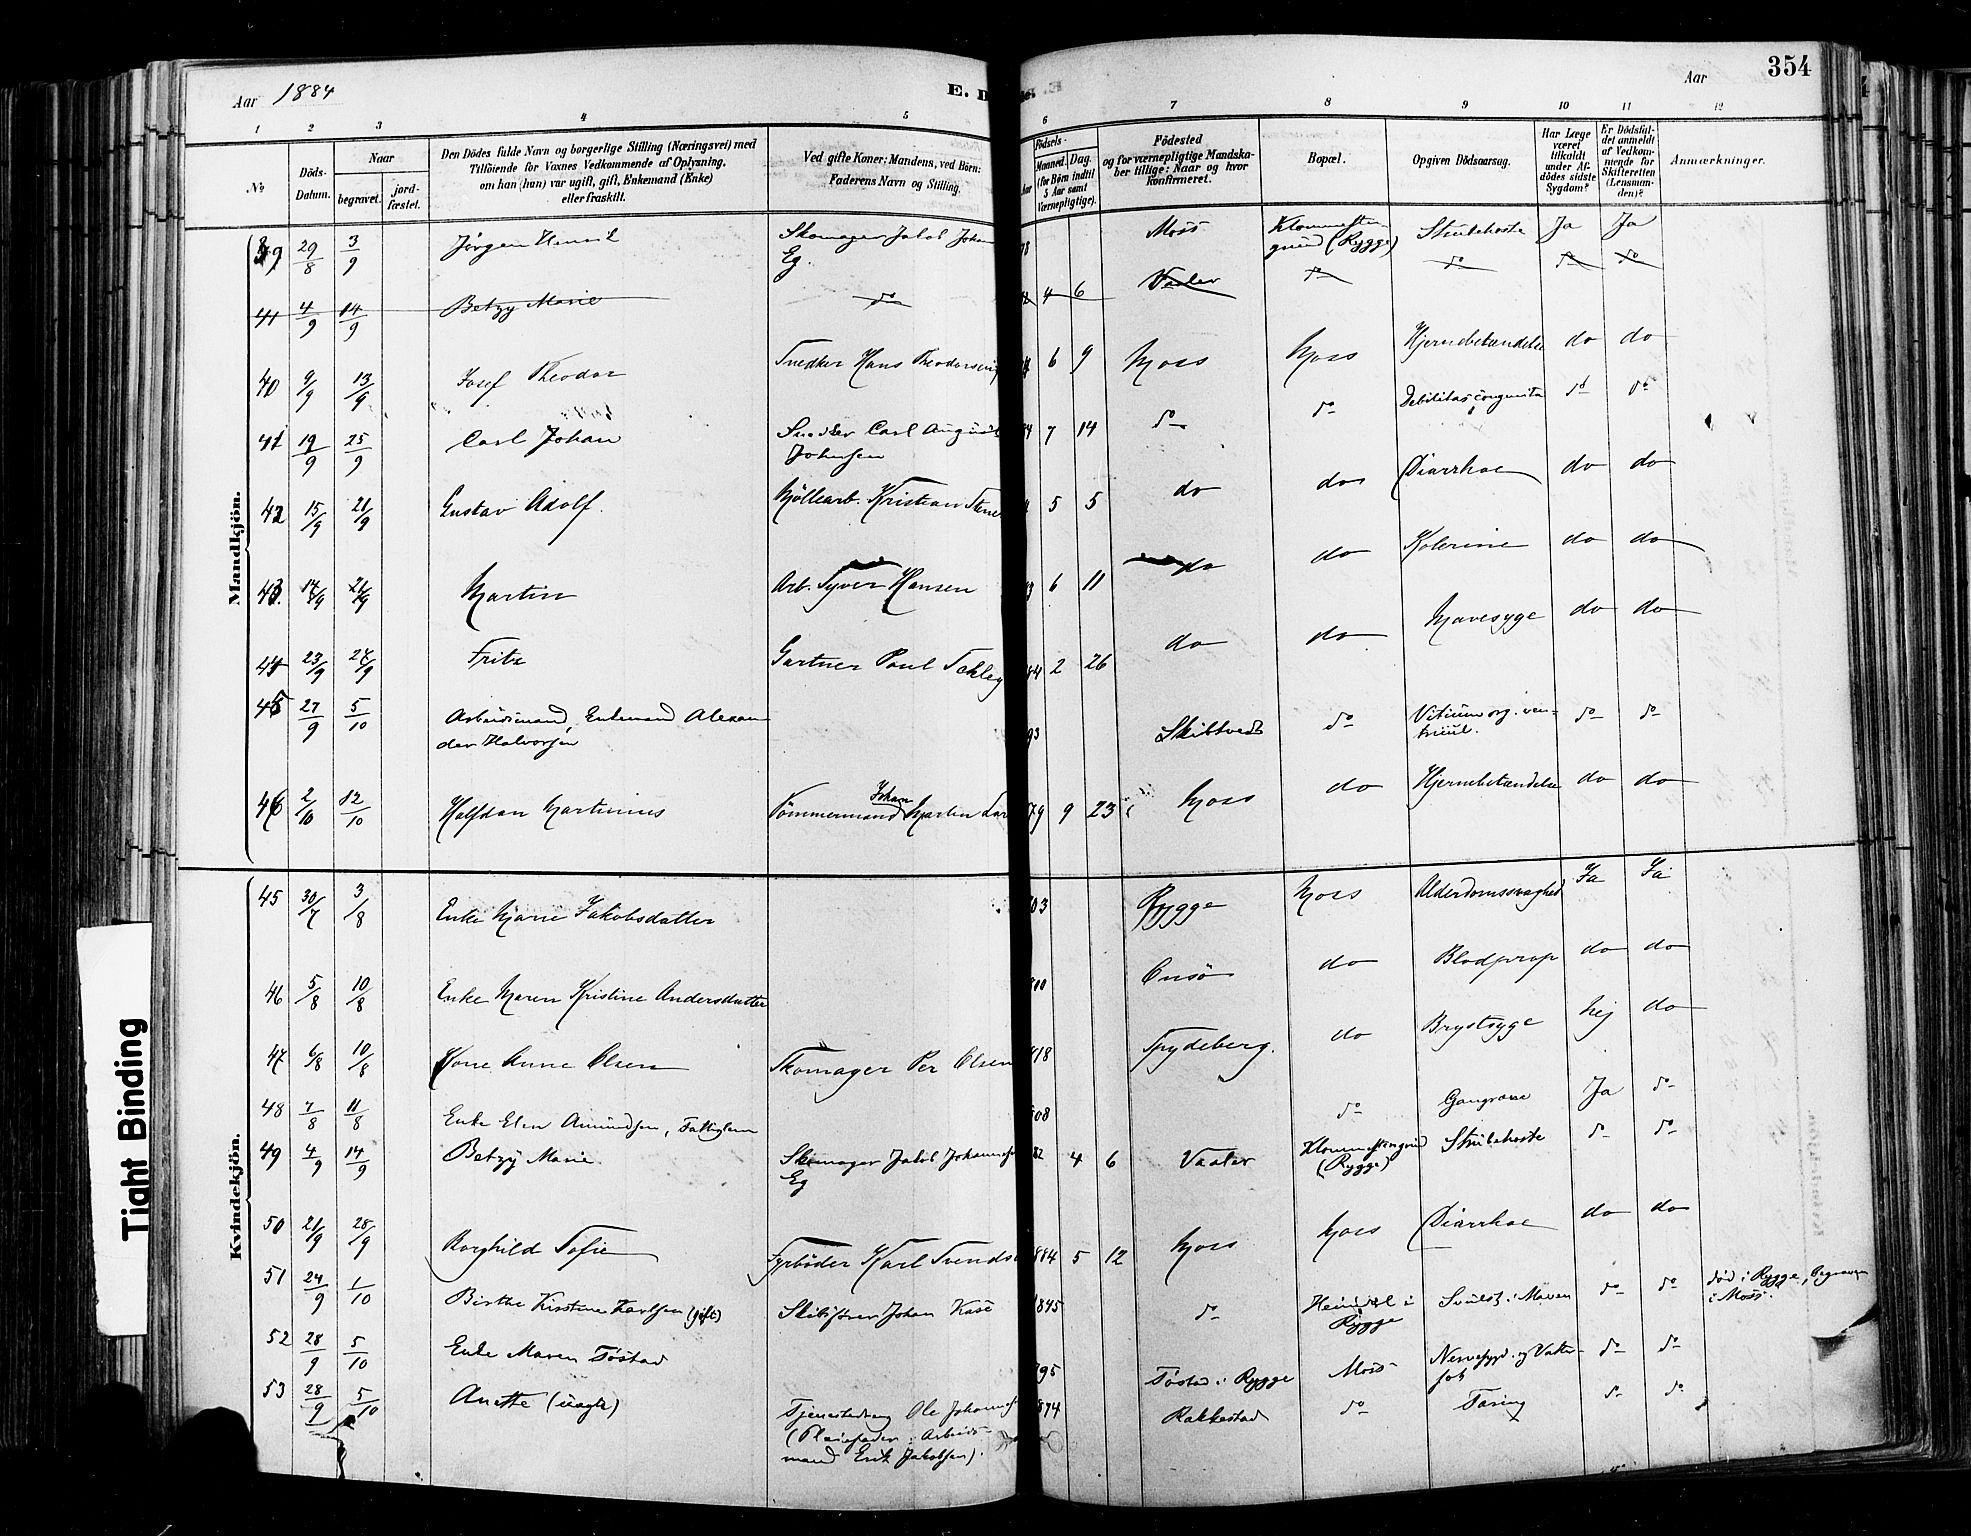 Aar 1884
E. D
Aar
354
1 2 3 4 5 6 7 8 9 10 11 12
No
Döds-
Datum.
Naar
begravet.
jord-
fæstet.
Den Dödes fulde Navn og borgerlige Stilling (Næringsvei) med
Tilföiende for Voxnes Vedkommende af Oplysning,
om han (hun) var ugift, gift, Enkemand (Enke)
eller fraskilt.
Ved gifte Koner: Mandens, ved Börn:
Faderens Navn og Stilling.
Födsels-
Aar
Maaned. Dag.
(for Börn indtil
5 Aar samt
Værnepligtige).
Födested
og for værnepligtige Mandska-
ber tillige: Naar og hvor
konfirmeret.
Bopæl.
Opgiven Dödsaarsag.
Har Læge
været
tilkaldt
under Af-
dødes sidste
Sygdom?
Er Dödsfal-
det anmeldt
af Vedkom-
mende for
Skifteretten
(Lensman-
den)?
Anmærkninger.
Mandkjön.
39 29/8 3/9 Jørgen Henrik Skomager Jakob Johan 78 Moss Strubehoste Ja Ja
Eg. grund (Rygge)
41 4/9 14/9 Betzy Marie do 4 6 Vaaler do do do do
40 9/9 13/9 Josef Theodor Snedker Hans Theodorsen 6 9 Moss Moss Hjernebetændelse do do
41 19/9 25/9 Carl Johan Snedker Carl August 84 7 14 do do Debilitas congenita do do
Johnsen
42 15/9 21/9 Gustav Adolf. Møllearb. Kristian 5 5 do do Diarrhoe do do
43. 17/9 21/9 Martin Arb. Syver Hansen 3 6 11 do do Kolerine do do
44 23/9 27/9 Fritz Gartner Paul 84 2 26 do do Mavesyge do do
45 27/9 5/10 Arbeidsmand, Enkemand Alexan 93 Skibtvedt do Vitium org. ven- do do
der Halvorsen tricul.
46 2/10 12/10 Halfdan Martinius Tømmermand Johan Martin Lar 79 9 23 Moss do Hjernebetændelse do do
Kvindekjön.
45 30/7 3/8 Enke Marie Jakobsdatter 03 Rygge Moss Alderdomssvaghed Ja Ja
46 5/8 10/8 Enke Maren Kristine Andersdatter 800 Onsø do Blodprop do do
47 6/8 10/8 Kone Anne Olsen Skomager Per Olsen 818 Spydeberg. do Brystsyge Nej do
48 7/8 11/8 Enke Elen Amundsen, Fattiglem 808 do Gangræne Ja do
49 4/9 14/9 Betzy Marie Skomager Jakob Johannes 82 4 6 Vaaler Strubehoste do do
Eg (Rygge)
50 21/9 28/9 Borghild Sofie Fyrbøder Karl Svends 884 5 12 Moss Moss Diarrhoe do do
51 24/9 1/10 Birthe Kirstine Karlsen (gift) Skibsfører Johan 1845 do i Svulst i Maven do do død i Rygge, begraven
Rygge i Moss.
52 28/9 5/10 Enke Maren Tøstad 95 Tøstad i Rygge Moss do do
53 28/9 5/10 Anette (uægte) Ole Johannes 874 Rakkestad do Tæring do do
(Pleiefader: Arbeids-
mand Erik Jakobsen).
Tight Binding